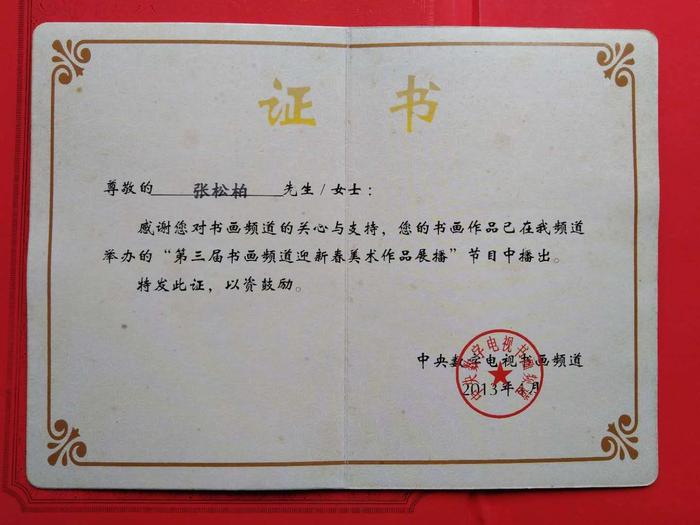 证书
尊敬的 张松柏 先生/女士：
感谢您对书画频道的关心与支持，您的书画作品已在我频道
举办的“第三届书画频道迎新春美术作品展播”节目中播出。
特发此证，以资鼓励。
中央数字电视书画频道
2013年1月
中央数字电视书画频道